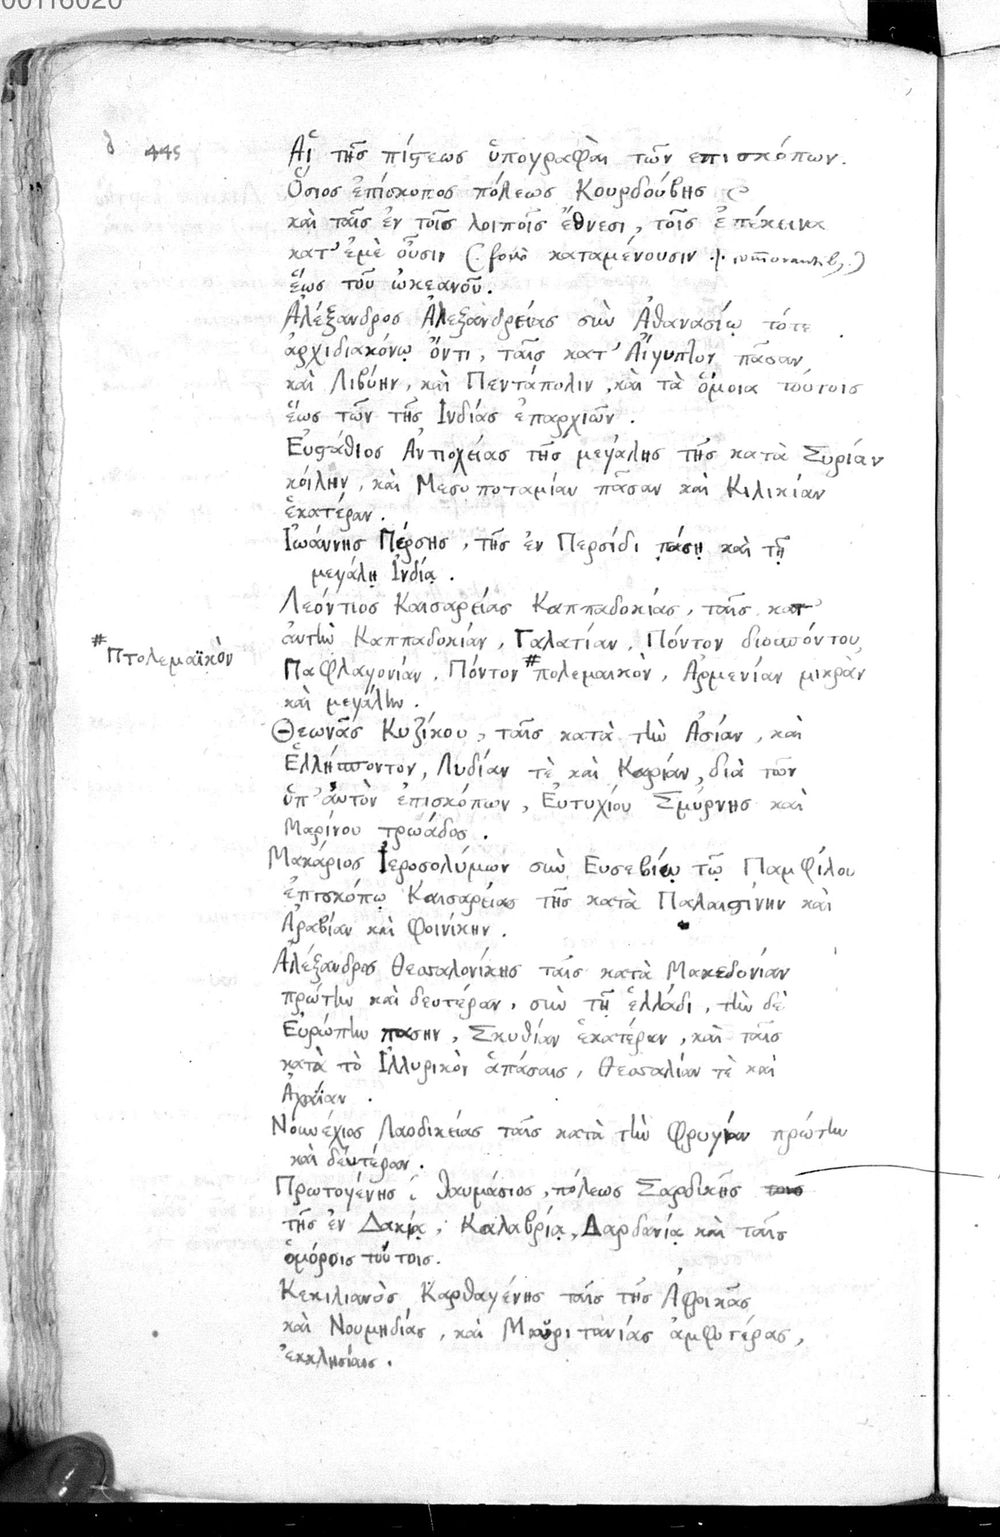 00116020
δ 445
Αἱ τῆς πίστεως ὑπογραφαὶ τῶν επισκόπων.
Ὅσιος ἐπίσκοπος πόλεως Κουρδούβης
καὶ ταῖς ἐν τοῖς λοιποῖς ἔθνεσι, τοῖς ἐπέκεινα
κατ' ἐμὲ οὖσιν (: καταμένουσιν :)
ἕως τοῦ ὠκεανοῦ.
Ἀλέξανδρος Ἀλεξανδρείας σὺν Ἀθανασίῳ τότε
ἀρχιδιακόνῳ ὄντι, ταῖς κατ' Αἴγυπτον πᾶσαν
καὶ Λιβύην, καὶ Πεντάπολιν, καὶ τὰ ὅμοια τούτοις
ἕως τῶν τῆς Ἰνδίας ἐπαρχιῶν.
Εὐστάθιος Ἀντιοχείας τῆς μεγάλης τῆς κατὰ Συρίαν
κοίλην, καὶ Μεσοποταμίαν πᾶσαν καὶ Κιλικίαν
ἑκατέραν.
Ἰωάννης Πέρσης, τῆς ἐν Περσίδι πάσῃ καὶ τῇ
μεγάλῃ Ἰνδίᾳ.
Λεόντιος Καισαρείας Καππαδοκίας, ταῖς κατ'
αὐτὴν Καππαδοκίαν, Γαλατίαν, Πόντον διοσπόντου,
# Πτολεμαϊκὸν
Παφλαγονίαν, Πόντον # πολεμαικὸν, Ἀρμενίαν μικρὰν
καὶ μεγάλην.
Θεωνᾶς Κυζίκου, ταῖς κατὰ τὴν Ἀσίαν, καὶ
Ἑλλήσποντον, Λυδίαν τὲ καὶ Καρίαν, διὰ τῶν
ὑπ' αὐτὸν ἐπισκόπων, Εὐτυχίου Σμύρνης καὶ
Μαρίνου τρωάδος.
Μακάριος Ἱεροσολύμων σὺν Ευσεβίῳ τῷ Παμφίλου
ἐπισκόπῳ Καισαρείας τῆς κατὰ Παλαιστίνην καὶ
Ἀραβίαν καὶ Φοινίκην.
Ἀλέξανδρος Θεσσαλονίκης ταῖς κατὰ Μακεδονίαν
πρώτην καὶ δευτέραν, σὺν τῇ ἑλλάδι, τὴν δὲ
Εὐρώπην πασην, Σκυθίαν ἑκατέραν, καὶ ταῖς
κατὰ τὸ Ἰλλυρικὸν ἁπάσαις, Θεσσαλίαν τὲ καὶ
Ἀχαΐαν.
Νουνέχιος Λαοδικείας ταῖς κατὰ τὴν Φρυγίαν πρώτην
καὶ δευτέραν.
Πρωτογένης ὁ θαυμάσιος, πόλεως Σαρδικῆς
τῆς ἐν Δακίᾳ, Καλαβρίᾳ, Δαρδανίᾳ καὶ ταῖς
ὁμόροις τούτοις.
Κεκιλιανὸς Καρθαγένης ταῖς τῆς Ἀφρικᾶς
καὶ Νουμηδίας, καὶ Μαυριτανίας ἀμφοτέρας,
ἐκκλησίαις.